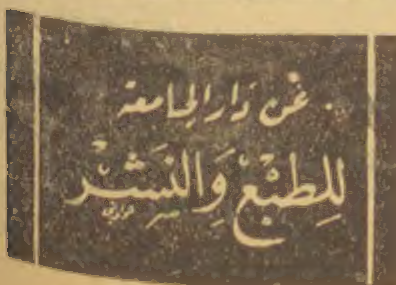 عن دار الجامعة
لِلطَبْعِ وَالنَشْرِ